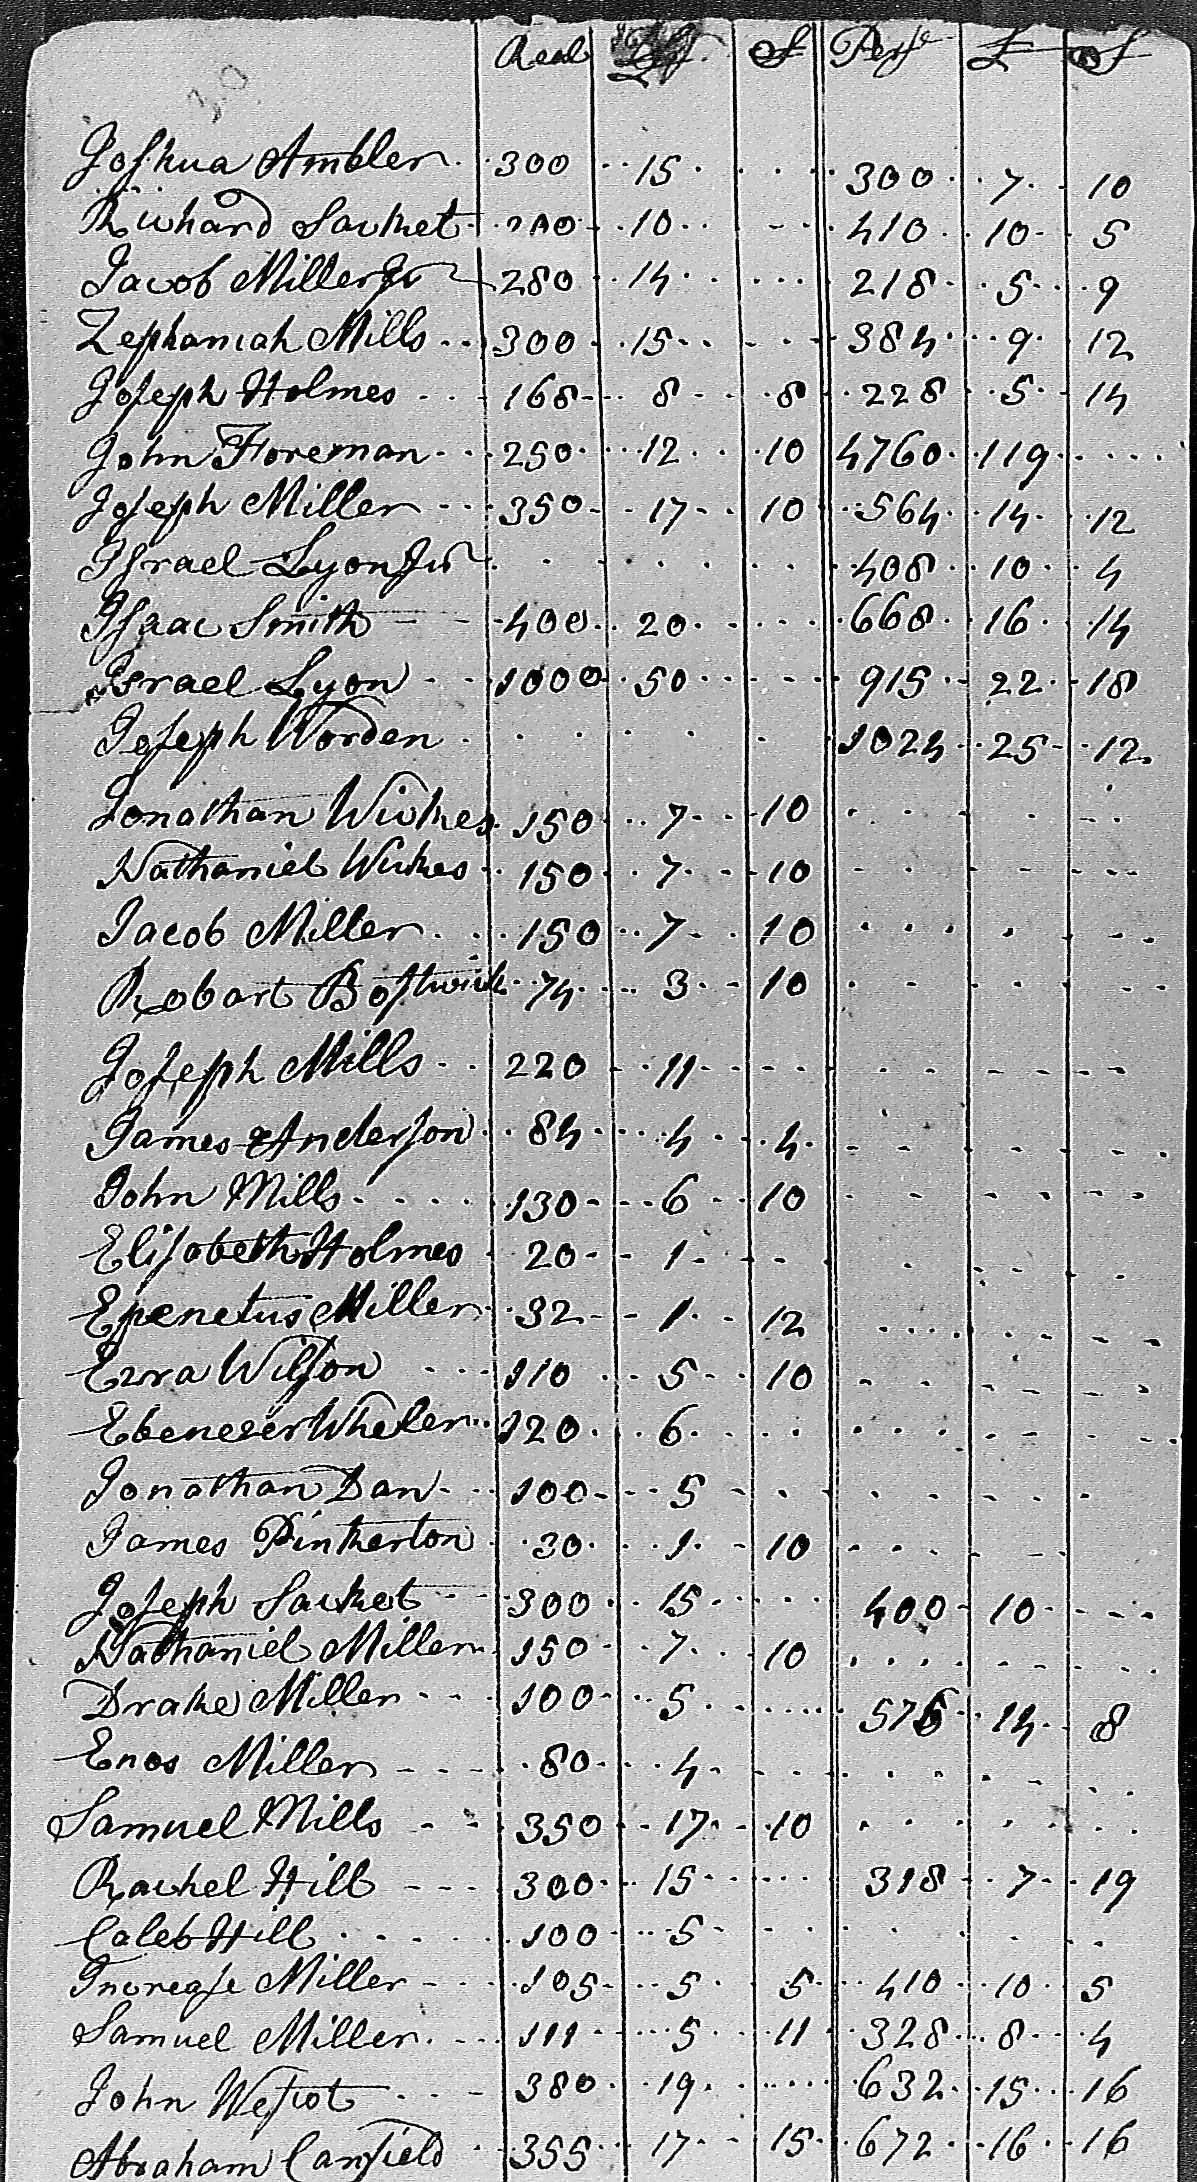 Real £ S Perse £ S
Joshua Ambler 300 15 300 7 10
Richard Sacket 200 10 410 10 5
Jacob Miller Jr 280 14 218 5 9
Zephaniah Mills 300 15 384 9 12
Joseph Holmes 168 8 8 228 5 14
John Foreman 250 12 10 4760 119
Joseph Miller 350 17 10 564 14 12
Israel Lyon Jur 408 10 4
Isaac Smith 400 20 668 16 14
Israel Lyon 1000 50 915 22 18
Joseph Worden 1024 25 12
Jonathan Wickes 150 7 10
Nathaniel Wickes 150 7 10
Jacob Miller 150 7 10
Robart Bostwick 74 3 10
Joseph Mills 220 11
James Anderson 84 4 4
John Mills 130 6 10
Elisabeth Holmes 20 1
Epenetus Miller 32 1 12
Ezra Wilson 110 5 10
Ebenezer Wheler 120 6
Jonathan Dan 100 5
James Pinkerton 30 1 10
Joseph Sacket 300 15 400 10
Nathaniel Miller 150 7 10
Drake Miller 100 5 576 14 8
Enos Miller 80 4
Samuel Mills 350 17 10
Rachel Hill 300 15 318 7 19
Caleb Hill 100 5
Increase Miller 105 5 5 410 10 5
Samuel Miller 111 5 11 328 8 4
John Wescot 380 19 632 15 16
Abraham Canfield 355 17 15 672 16 16